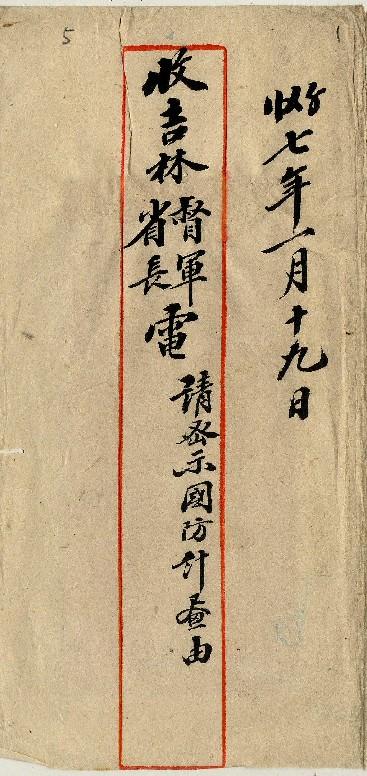 1
收七年一月十九日
收吉林督軍省長電
請密示國防計畫由
5